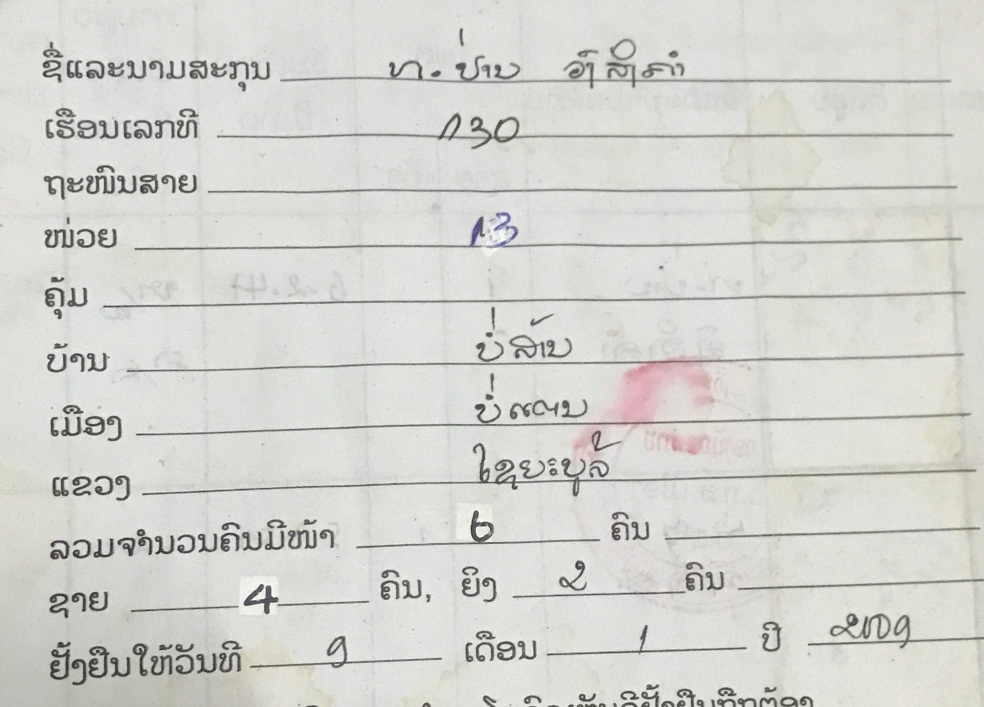 ຊື່ແລະນາມສະກຸນ ທ. ປ່ານ
ເຮືອນເລກທີ 130
ຖະໜົນສາຍ
ໜ່ວຍ 13
ຄຸ້ມ
ບ້ານ
ເມືອງ ບໍ່ແຕນ
ແຂວງ ໄຊຍະບູລີ
ລວມຈຳນວນຄົນມີໜ້າ 6 ຄົນ
ຊາຍ 4 ຄົນ, ຍິງ 2 ຄົນ
ຢັ້ງຢືນໃຫ້ວັນທີ 9 ເດືອນ 1 ປີ 2009